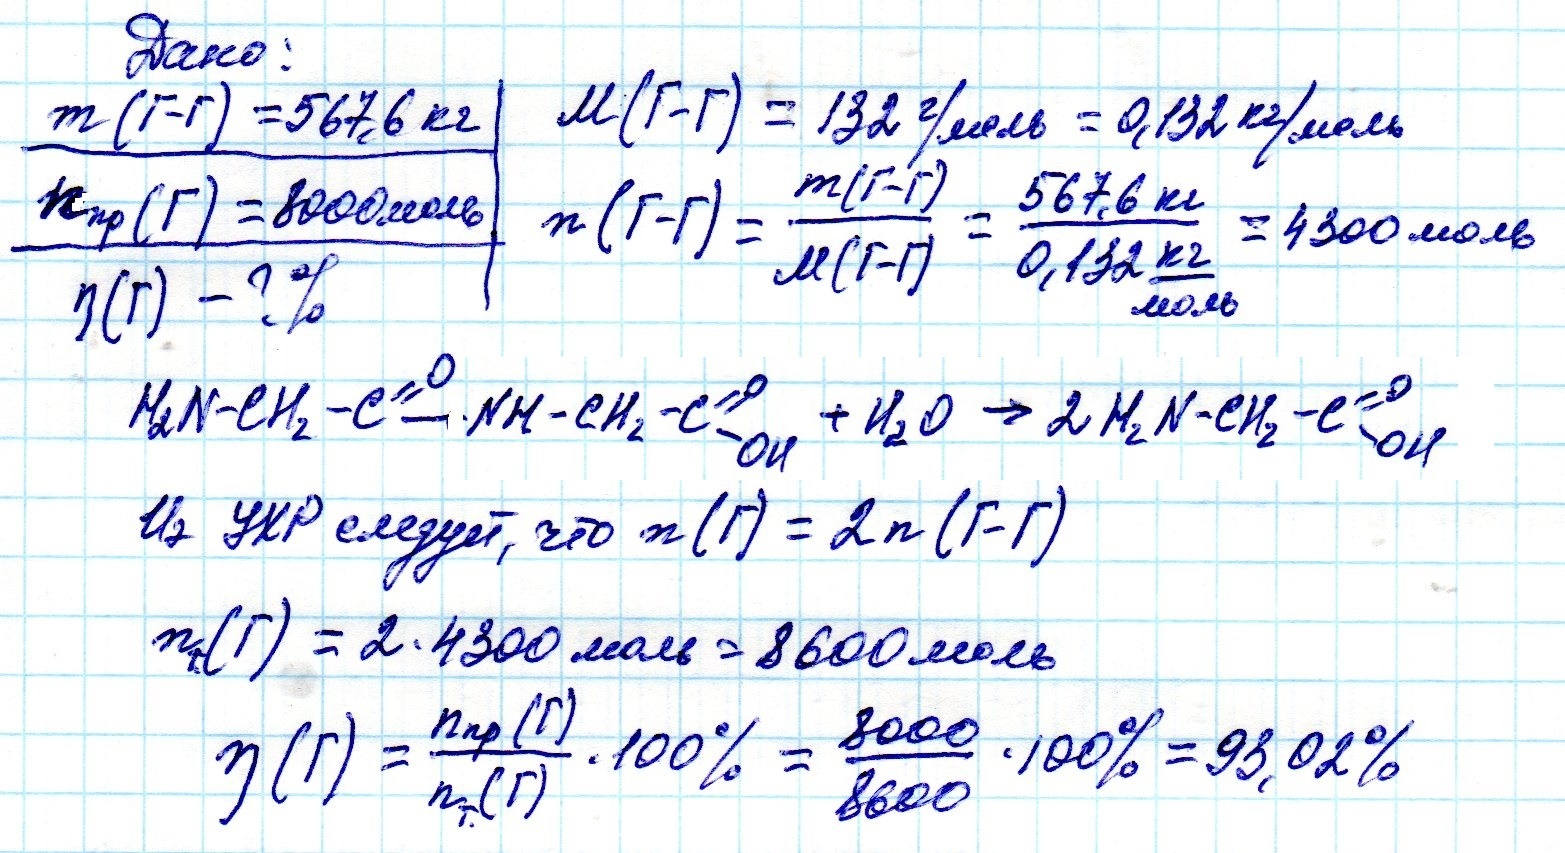 Дано:
m(Г-Г) = 567,6 кг
nпр(Г) = 8000 моль
η(Г) - ? %
M(Г-Г) = 132 г/моль = 0,132 кг/моль
n(Г-Г) = m(Г-Г) / M(Г-Г) = 567,6 кг / 0,132 кг/моль = 4300 моль
H₂N-CH₂-C(=O)-NH-CH₂-C(=O)-OH + H₂O → 2 H₂N-CH₂-C(=O)-OH
Из УХР следует, что n(Г) = 2n(Г-Г)
nт.(Г) = 2·4300 моль = 8600 моль
η(Г) = nпр(Г) / nт.(Г) ·100% = 8000 / 8600 ·100% = 93,02%